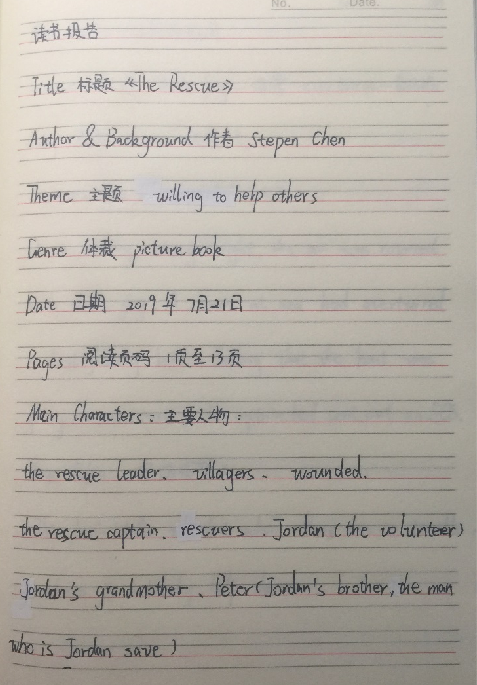 No. Date.
读书报告
Title 标题 《The Rescue》
Author & Background 作者 Stepen Chen
Theme 主题 willing to help others
Genre 体裁 picture book
Date 日期 2019年7月21日
Pages 阅读页码 1页至13页
Main Characters: 主要人物:
the rescue leader、villagers、wounded.
the rescue captain、rescuers、Jordan (the volunteer)
Jordan's grandmother、Peter(Jordan's brother, the man
who is Jordan save)